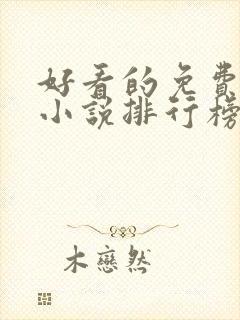 好看的免費
小說排行榜
木戀然